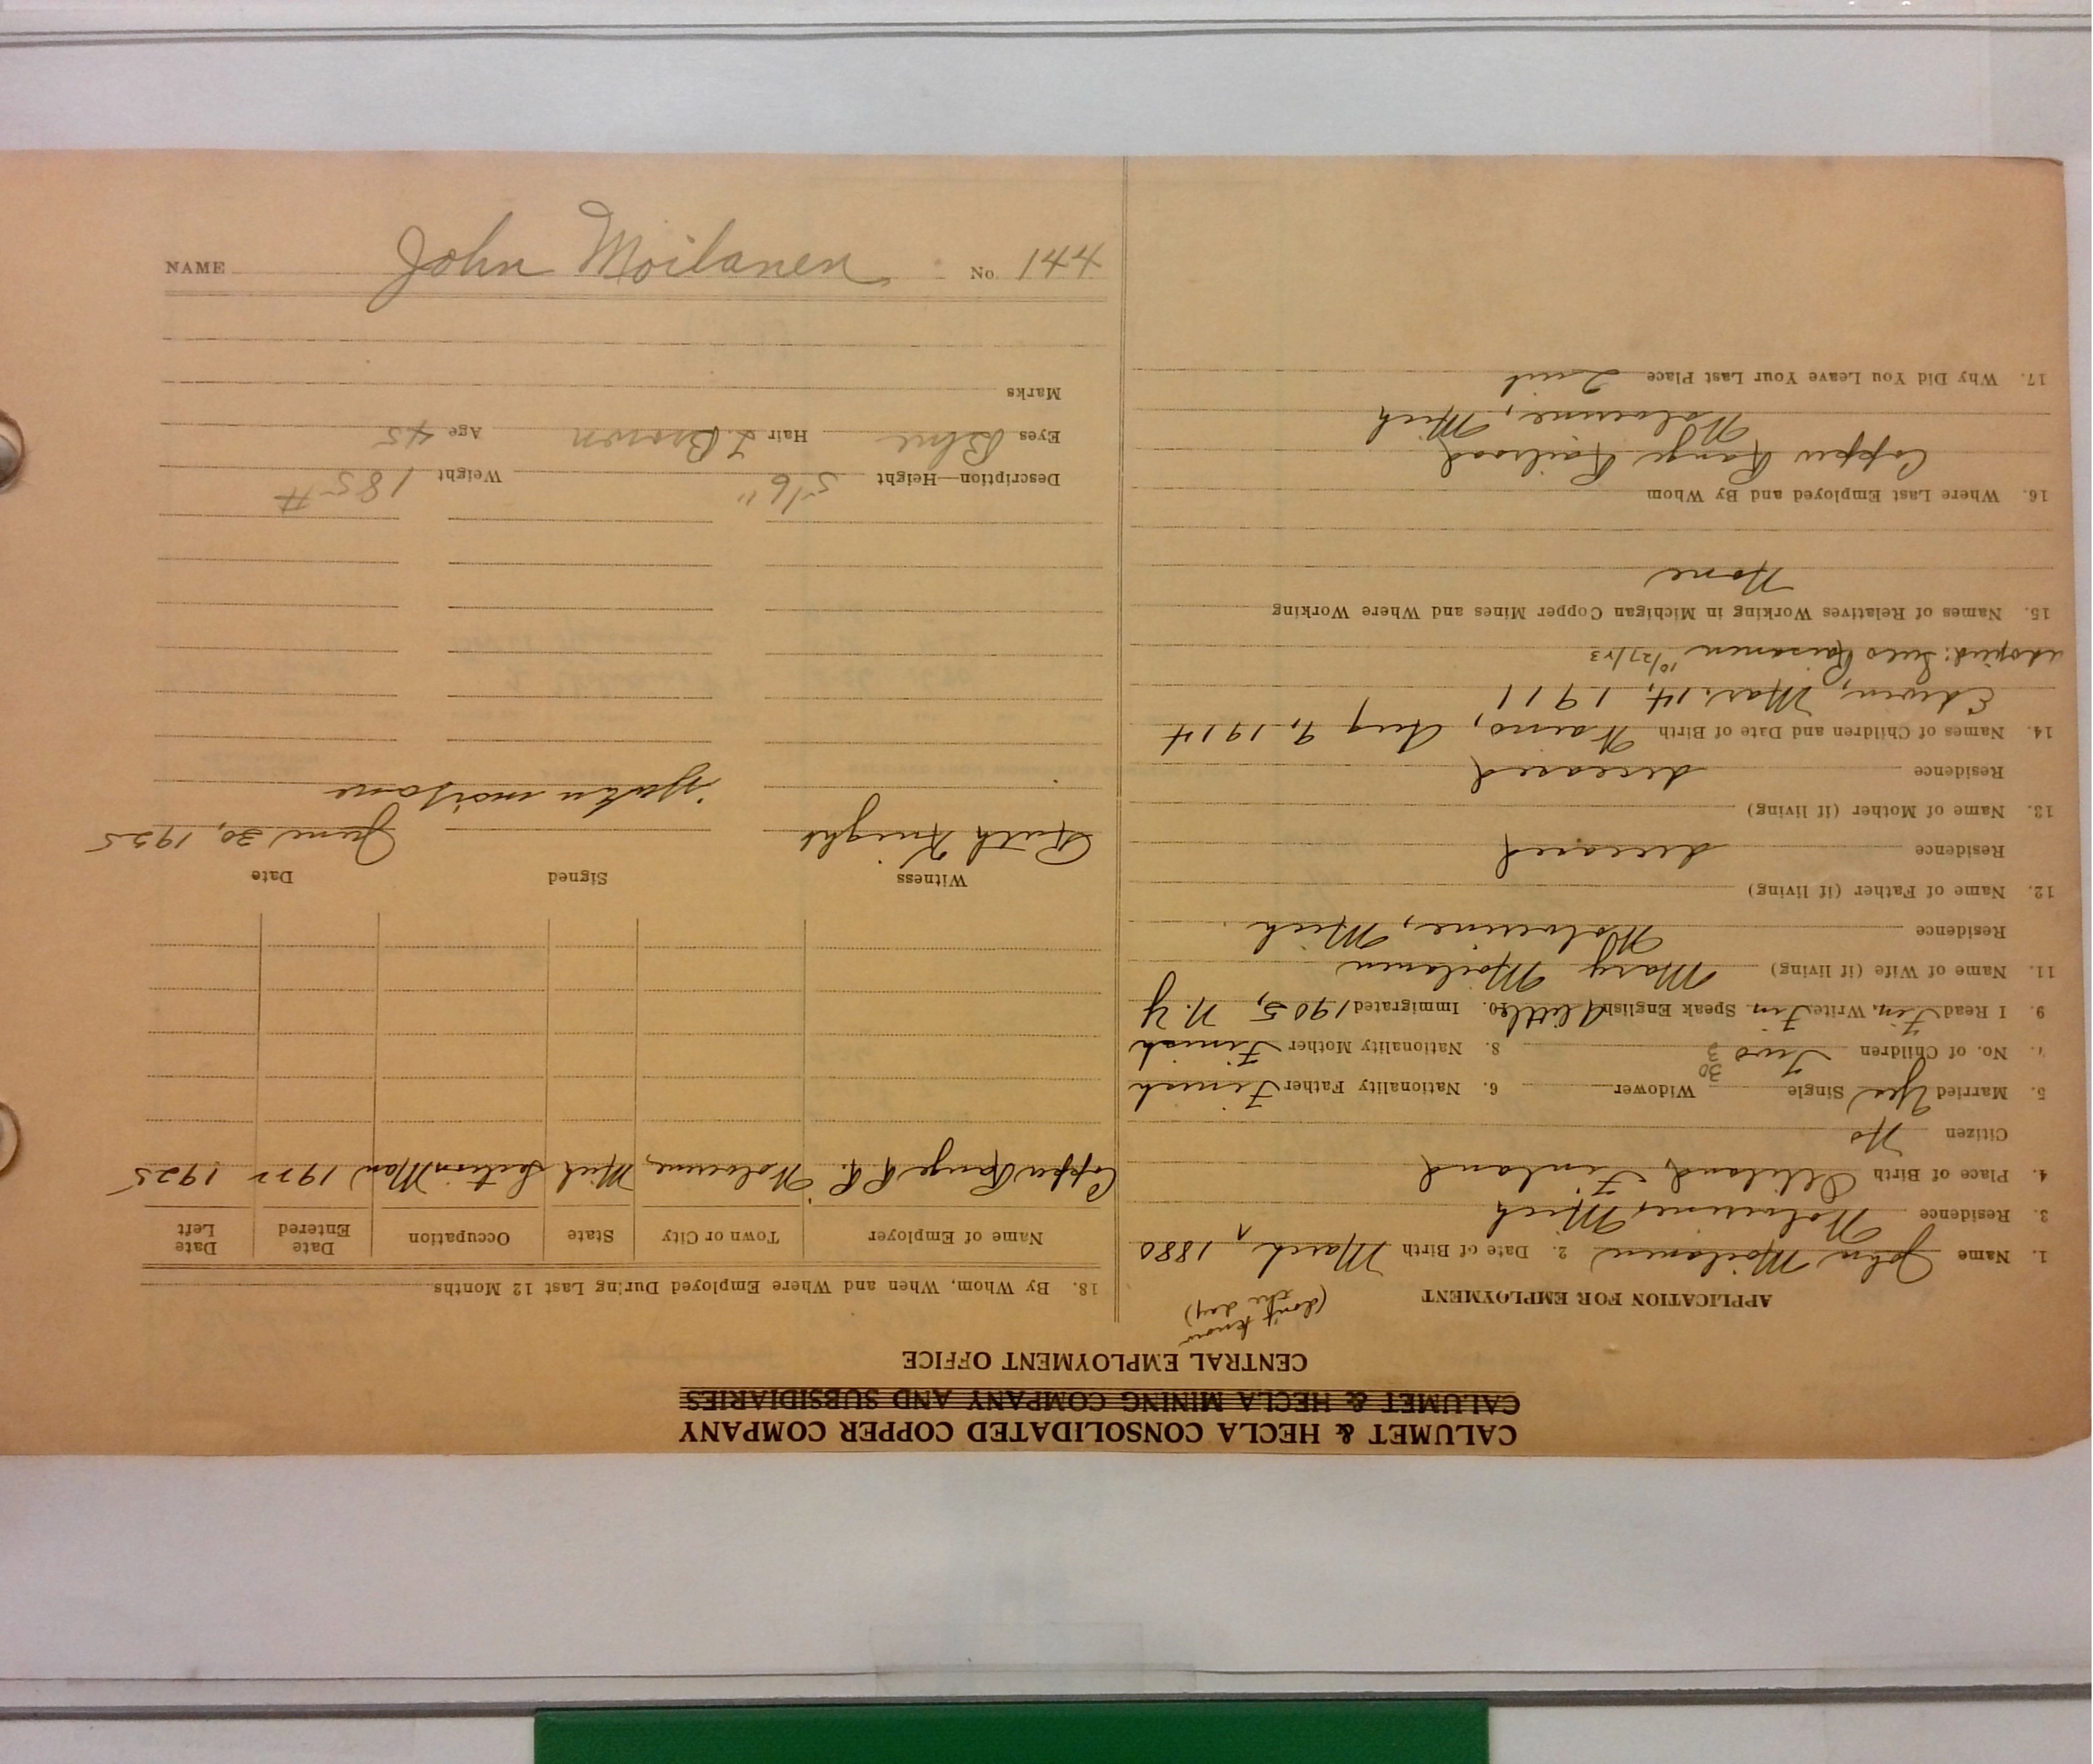 CALUMET & HECLA CONSOLIDATED COPPER COMPANY
CALUMET & HECLA MINING COMPANY AND SUBSIDIARIES
CENTRAL EMPLOYMENT OFFICE
APPLICATION FOR EMPLOYMENT
(don't know
the day)
1. Name John Moilanen 2. Date of Birth March ^ 1880
3. Residence Wolverine, Mich
4. Place of Birth Finland
Citizen No
5. Married Yes Single Widower 6. Nationality Father Finish
30
7. No. of Children Two 8. Nationality Mother Finish
3
9. I Read Fin, Write Fin. Speak English A little 10. Immigrated 1905, N.Y
11. Name of Wife (if living) Mary Moilanen
Residence Wolverine, Mich
12. Name of Father (if living)
Residence deceased
13. Name of Mother (if living)
Residence deceased
14. Names of Children and Date of Birth Waino, Aug 9, 1914
Edwin, Mar. 14, 1911
adopted: Raisanen 10/27/23
15. Names of Relatives Working in Michigan Copper Mines and Where Working
None
16. Where Last Employed and By Whom
Copper Range Railroad
Wolverine, Mich
17. Why Did You Leave Your Last Place Quit
18. By Whom, When and Where Employed During Last 12 Months
Name of Employer Town or City State Occupation Date Entered Date Left
Copper Range R.R. Wolverine, Mich Section Man 1922 1925
Witness Signed Date
Ruth Knight June 30, 1925
Description—Height 5'6" Weight 185#
Eyes Blue Hair L Brown Age 45
Marks
NAME John Moilanen No. 144